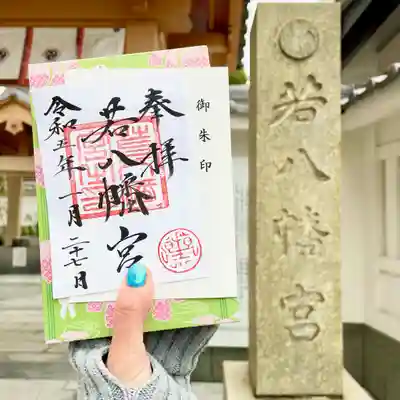 御朱印
奉拝
若八幡宮
令和五年一月二十一日
若八幡宮